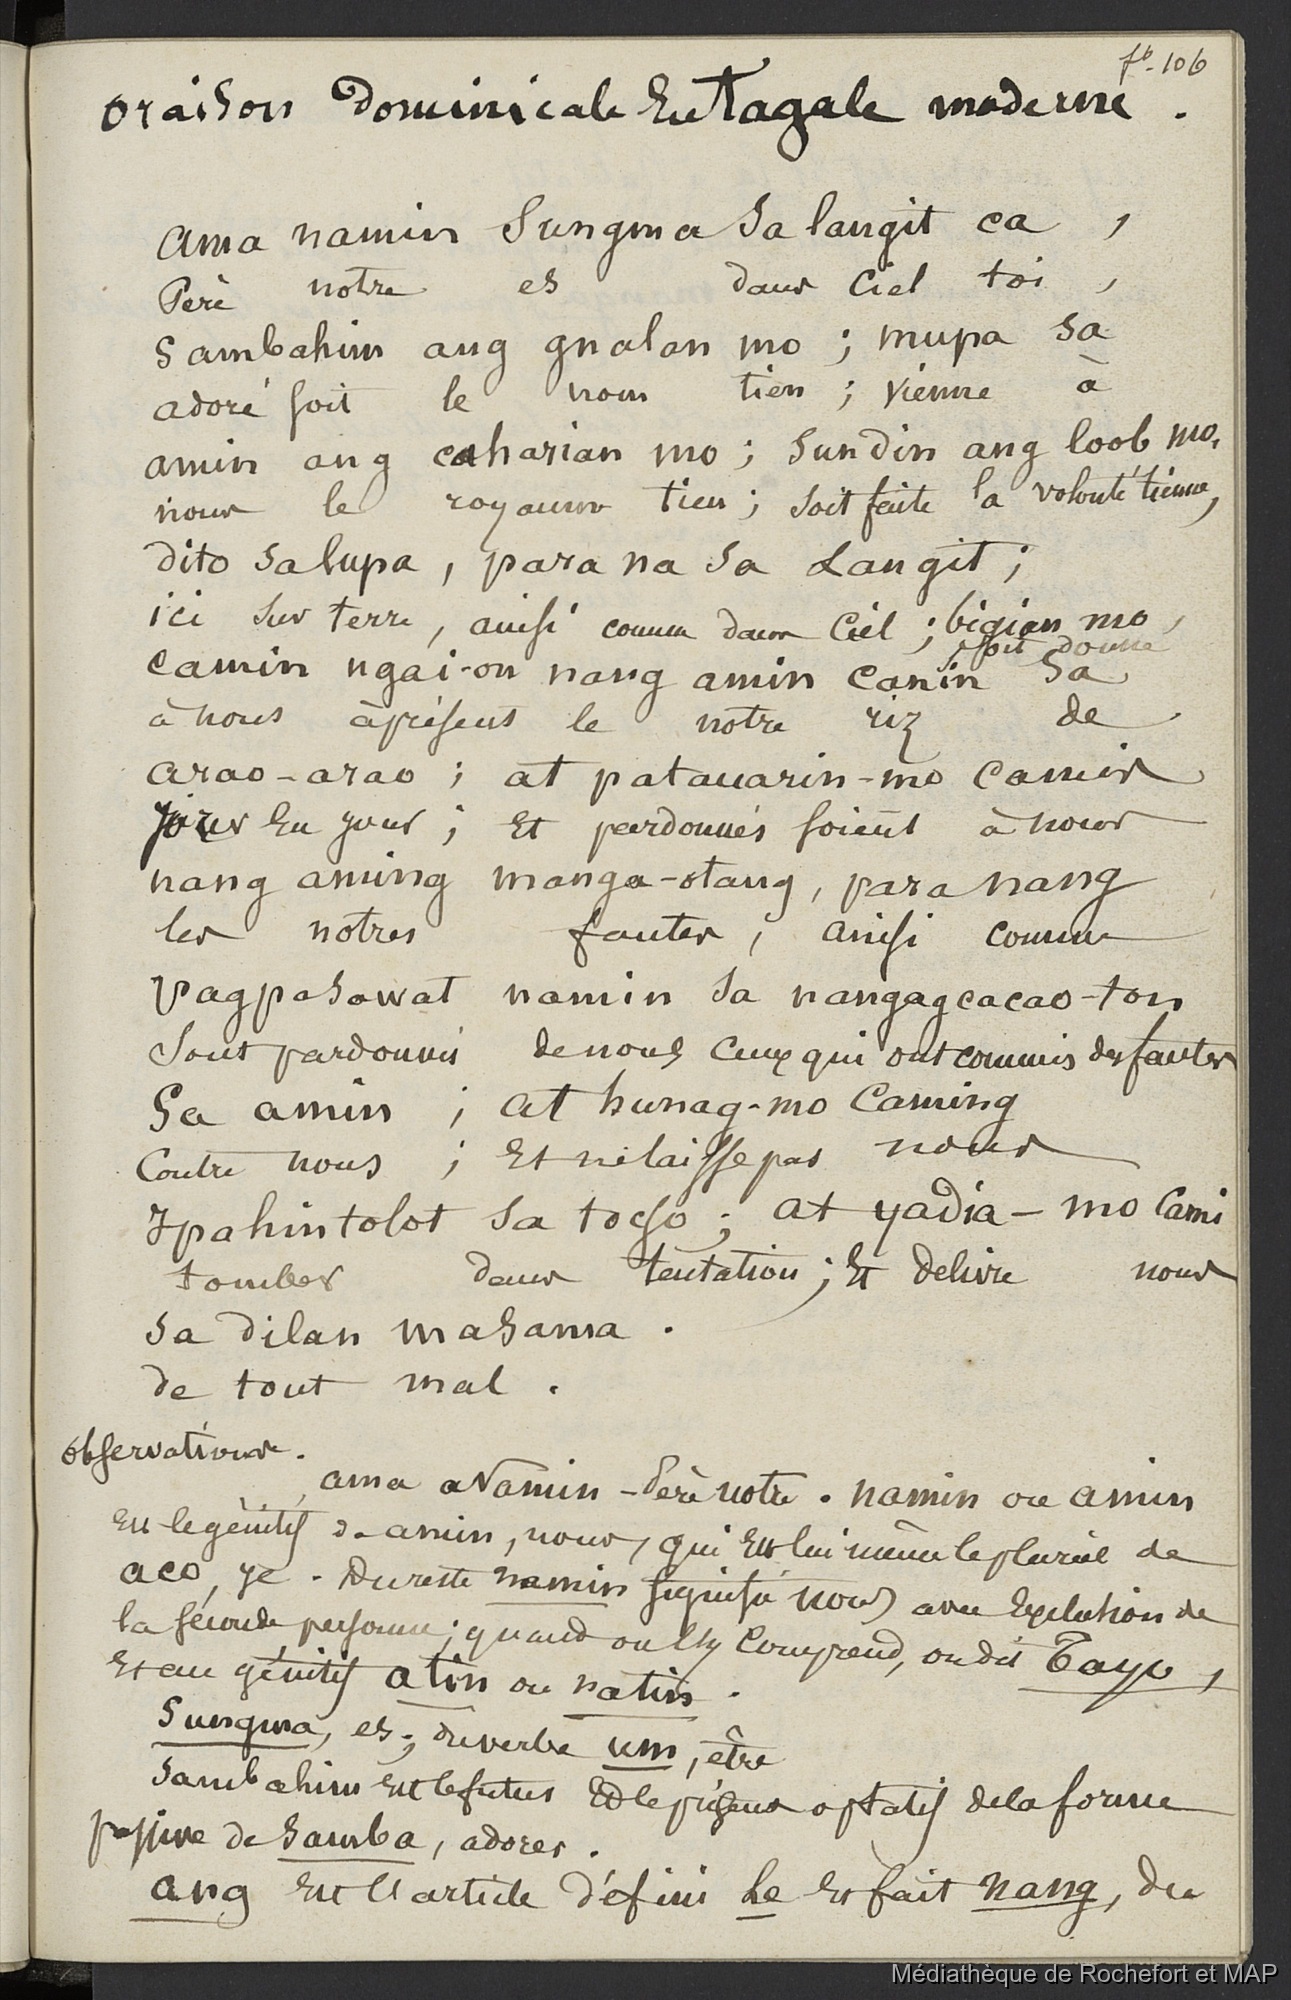 fº-106
oraison Dominicale En Tagale moderne.
ama namin Sungma Sa langit ca,
Père notre es dans Ciel toi,
Sambahim ang gnalan mo; mupa Sa
adoré soit le nom tien; Vienne à
amin ang caharian mo; Sundin ang loob mo,
nous le royaume tien; Soit faite la volonté tienne,
dito Salupa, para na Sa Langit;
ici Sur terre, ainsi comme dans Ciel; bigian mo,
soit donné
camin ngai-on nang amin canin Sa
à nous àprésent le notre riz de
arao-arao; at patauarin-mo Camin
jour En jour; Et pardonnés soient à nous
nang aming manga-otang, para nang
les notres fautes, ainsi comme
pagpasawat namin Sa nangagcacao-ton
Sont pardonnés denous Ceux qui ont commis des fautes
Sa amin; at hunag-mo Caming
Contre nous; Et ne laisse pas nous
Ipahintolot Sa tocso; at yadia-mo Cami
tomber dans tentation; Et delivre nous
Sa dilan masama.
de tout mal.
observations.
ama Namin - Père notre. namin ou amin
Est legénitif de amin, nous, qui Est lui même le pluriel de
aco, je. Dureste namin signifie nous avec Exclusion de
la séconde personne; quand on l'y Comprend, on dit Tayo,
Et au génitif atin ou natin.
Sungma, es; du verbe um, être
Sambahim Est le futur Et le présent optatif dela forme
passive de Samba, adorer.
ang Est l'article défini Le Et fait nang, du
Médiathèque de Rochefort et MAP